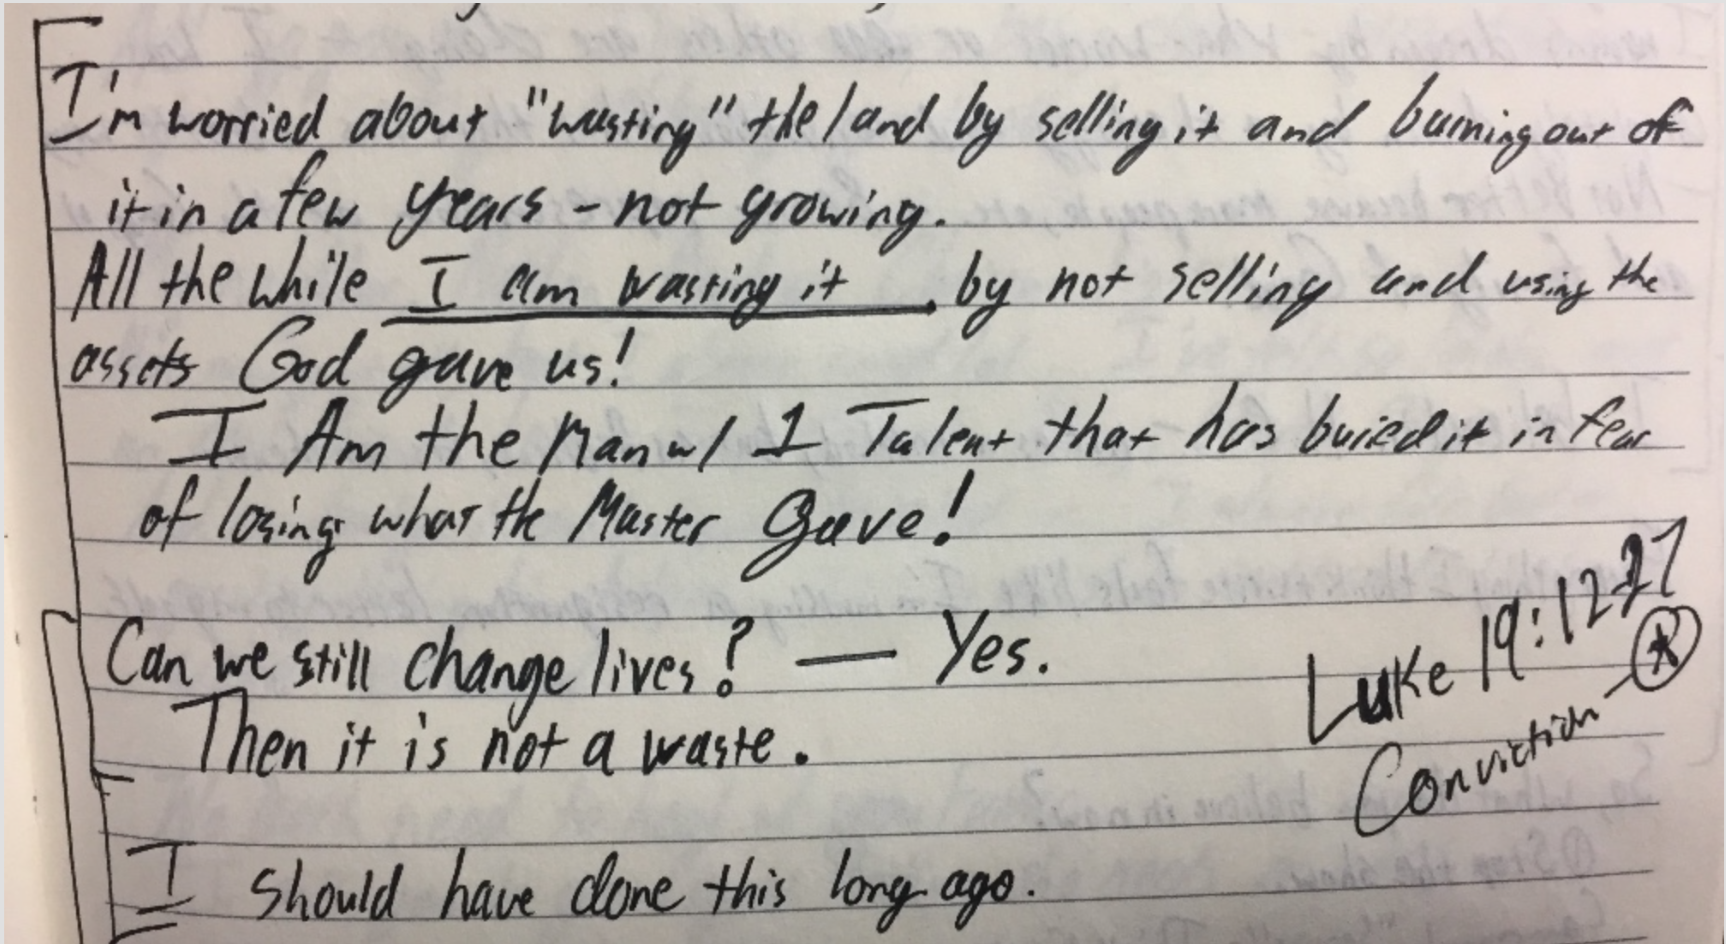 I'm worried about "wasting" the land by selling it and burning out of
it in a few years - not growing.
All the while I am wasting it by not selling and using the
assets God gave us!
I Am the Man w/ 1 Talent that has buried it in fear
of losing what the Master Gave!
Can we still change lives? — Yes.
Then it is not a waste.
Luke 19:12-27
Conviction
I should have done this long ago.